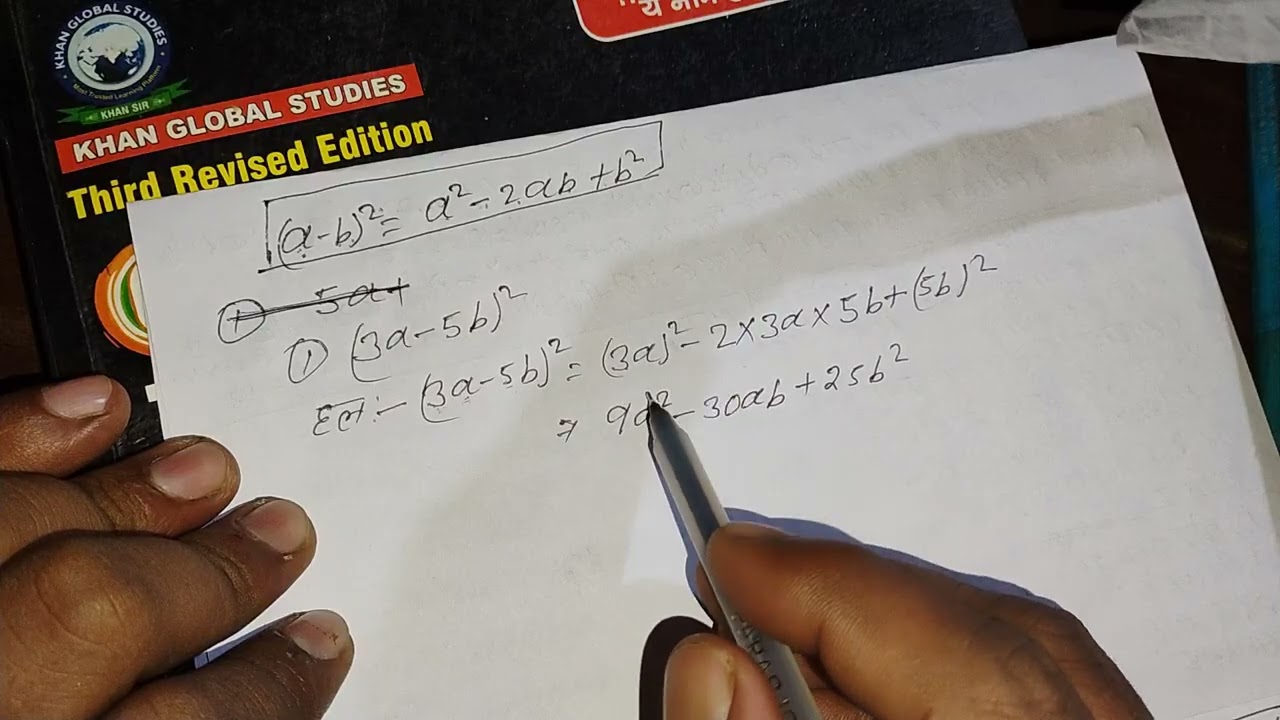 KHAN GLOBAL STUDIES
Most Trusted Learning Platform
KHAN SIR
KHAN GLOBAL STUDIES
Third Revised Edition
(a-b)² = a² - 2ab + b²
① (3a - 5b)²
हल:- (3a - 5b)² = (3a)² - 2×3a×5b + (5b)²
⇒ 9a² - 30ab + 25b²